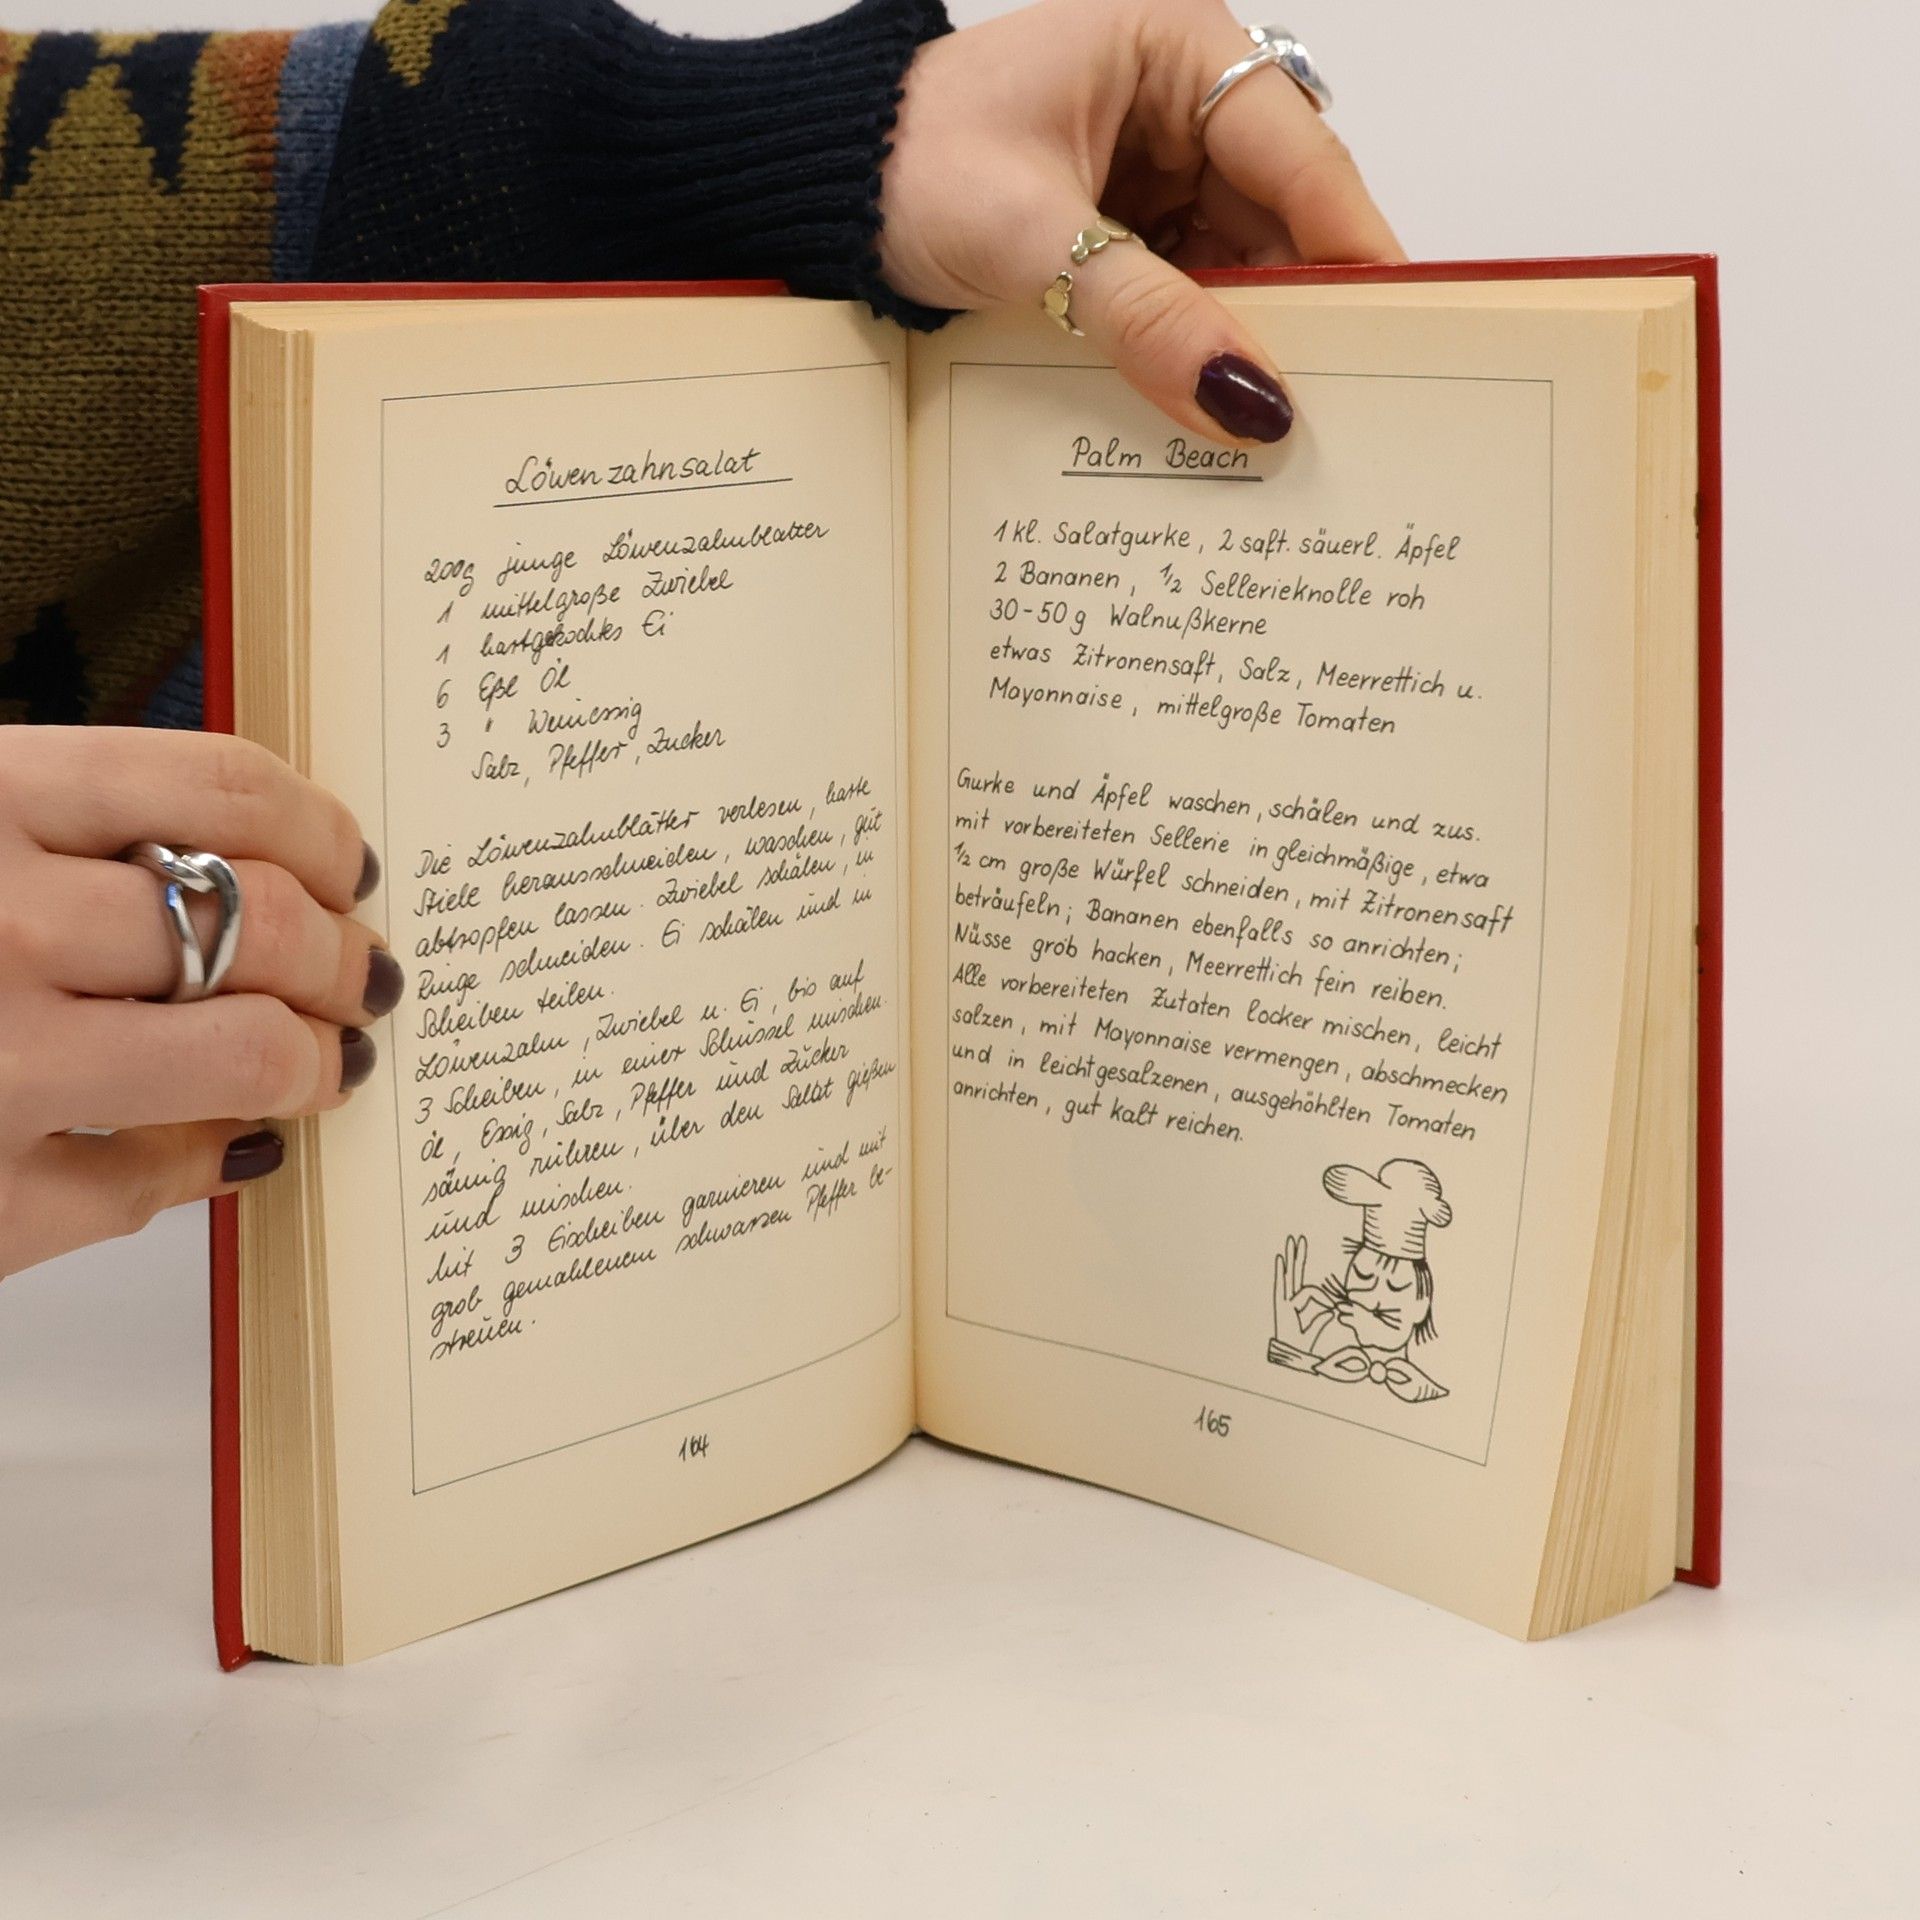 Löwenzahnsalat
200g junge Löwenzahnblätter
1 mittelgroße Zwiebel
1 hartgekochtes Ei
6 Eßl Öl
3 " Weinessig
Salz, Pfeffer, Zucker
Die Löwenzahnblätter verlesen, harte
Stiele herausschneiden, waschen, gut
abtropfen lassen. Zwiebel schälen, in
Ringe schneiden. Ei schälen und in
Scheiben teilen.
Löwenzahn, Zwiebel u. Ei, bis auf
3 Scheiben, in einer Schüssel mischen.
Öl, Essig, Salz, Pfeffer und Zucker
sämig rühren, über den Salat gießen
und mischen.
Mit 3 Eischeiben garnieren und mit
grob gemahlenem schwarzen Pfeffer be-
streuen.
164
Palm Beach
1 kl. Salatgurke, 2 saft. säuerl. Äpfel
2 Bananen, 1/2 Sellerieknolle roh
30-50 g Walnußkerne
etwas Zitronensaft, Salz, Meerrettich u.
Mayonnaise, mittelgroße Tomaten
Gurke und Äpfel waschen, schälen und zus.
mit vorbereiteten Sellerie in gleichmäßige, etwa
1/2 cm große Würfel schneiden, mit Zitronensaft
beträufeln; Bananen ebenfalls so anrichten;
Nüsse grob hacken, Meerrettich fein reiben.
Alle vorbereiteten Zutaten locker mischen, leicht
salzen, mit Mayonnaise vermengen, abschmecken
und in leichtgesalzenen, ausgehöhlten Tomaten
anrichten, gut kalt reichen.
165